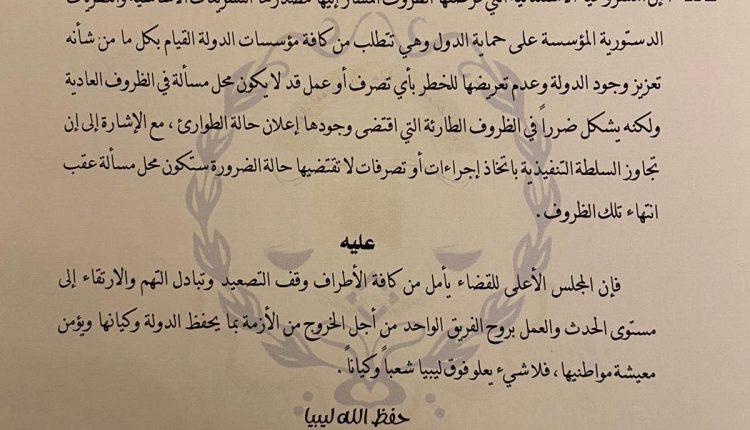 الدستورية المؤسسة على حماية الدول وهي تتطلب من كافة مؤسسات الدولة القيام بكل ما من شأنه
تعزيز وجود الدولة وعدم تعريضها للخطر بأي تصرف أو عمل قد لا يكون محل مسألة في الظروف العادية
ولكنه يشكل ضرراً في الظروف الطارئة التي اقتضى وجودها إعلان حالة الطوارئ ، مع الإشارة إلى إن
تجاوز السلطة التنفيذية باتخاذ إجراءات أو تصرفات لا تقتضيها حالة الضرورة ستكون محل مسألة عقب
انتهاء تلك الظروف .
عليه
فإن المجلس الأعلى للقضاء يأمل من كافة الأطراف وقف التصعيد وتبادل التهم والارتقاء إلى
مستوى الحدث والعمل بروح الفريق الواحد من أجل الخروج من الأزمة بما يحفظ الدولة وكيانها ويؤمن
معيشة مواطنيها ، فلا شيء يعلو فوق ليبيا شعباً وكياناً .
حفظ الله ليبيا